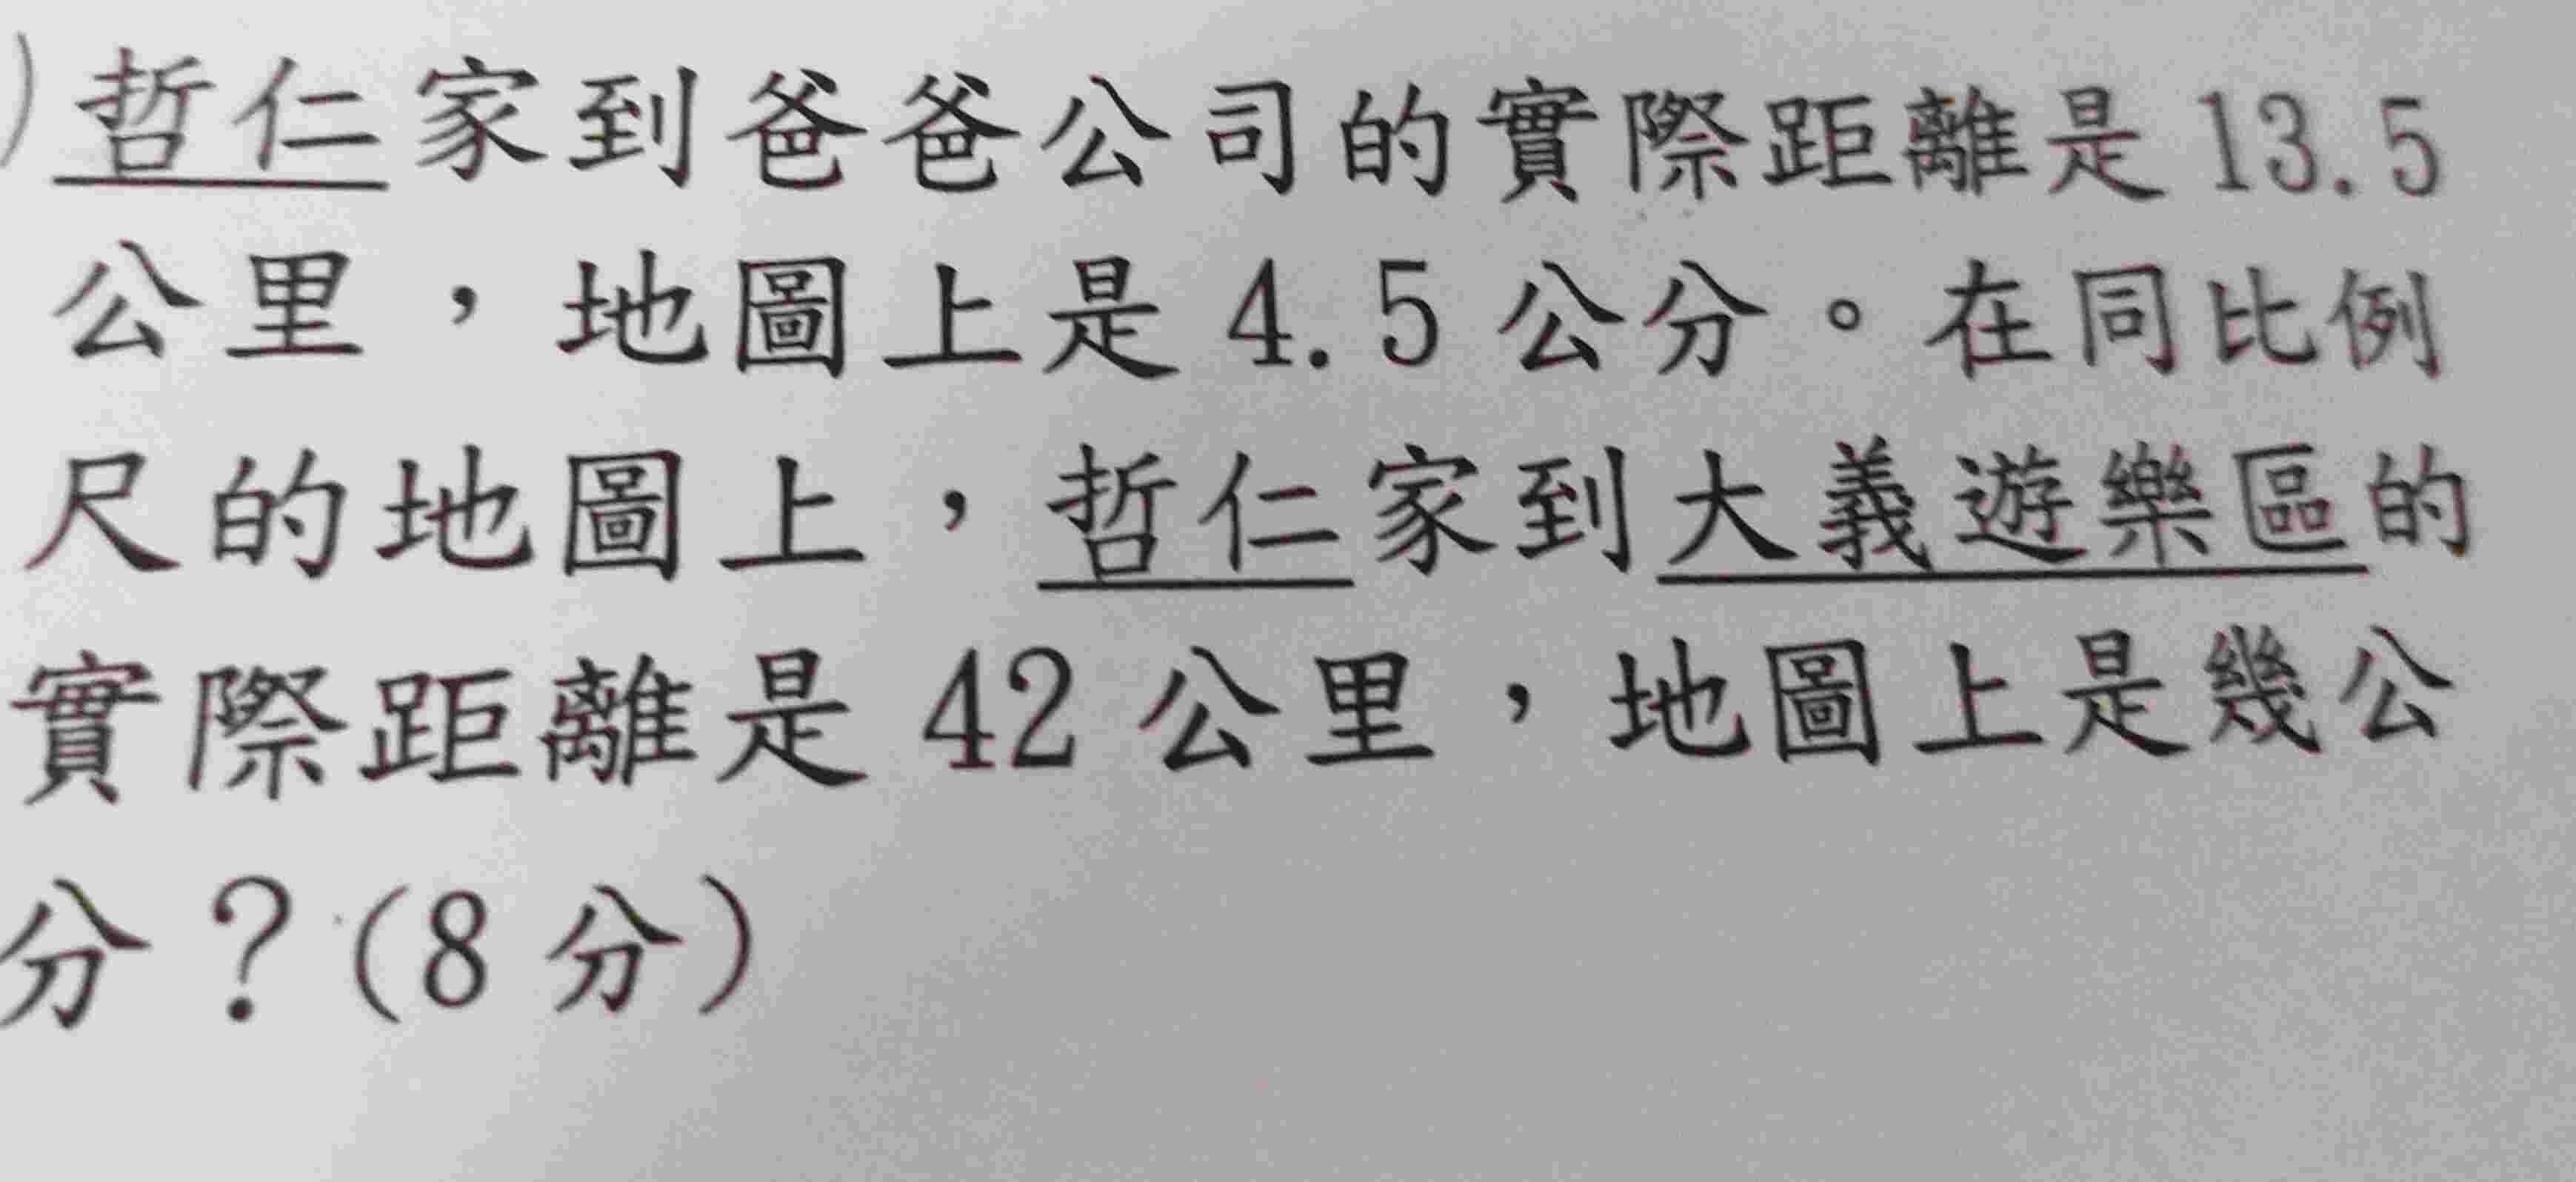 ）哲仁家到爸爸公司的實際距離是13.5
公里，地圖上是4.5公分。在同比例
尺的地圖上，哲仁家到大義遊樂區的
實際距離是42公里，地圖上是幾公
分？(8分)